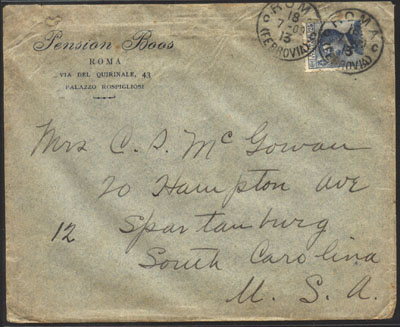 Pension Boos
ROMA
VIA DEL QUIRINALE, 43
PALAZZO ROSPIGLIOSI
ROMA
18
7
13
(FERROVIA)
ROMA
13
(FERROVIA)
Mrs C. S. Mc Gowan
20 Hampton Ave
12 Spartanburg
South Carolina
U. S. A.